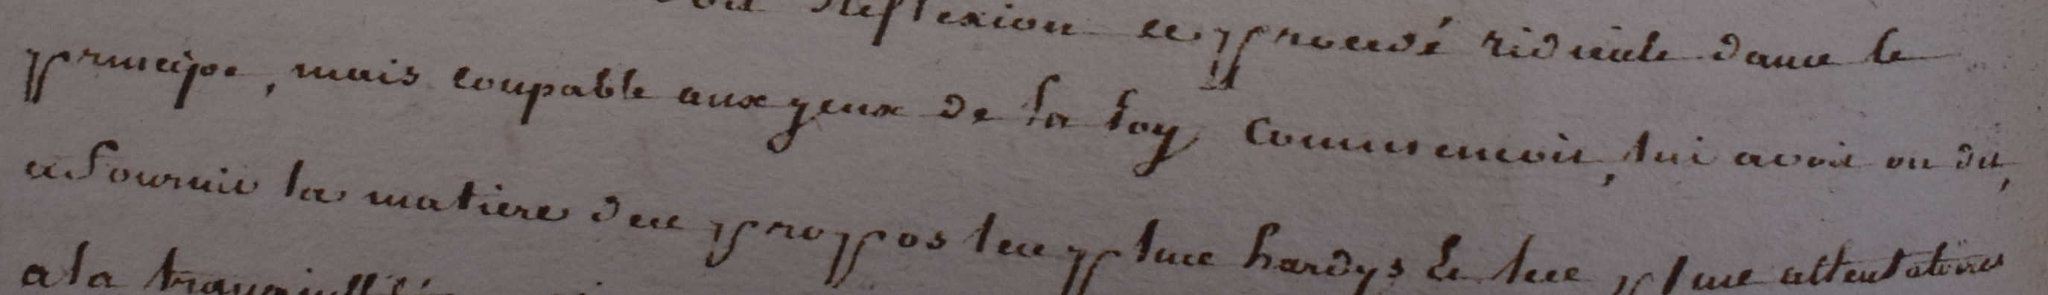 Reflexion ce procedé ridicule dans le
principe, mais coupable aux yeux de la loy commencoit, lui avoit on dit,
a fournir la matiere des propos les plus hardys & les plus attentatoires
a la tranquillité